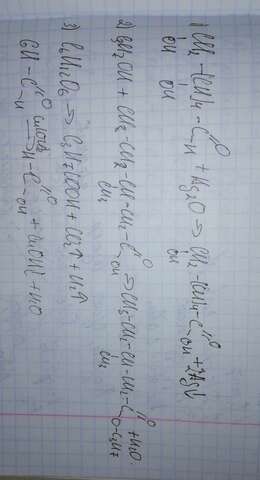 1) CH2 - (CH)4 - C =O H + Ag2O → CH2 - (CH)4 - C =O OH + 2Ag↓
OH OH OH
2) C3H7OH + CH3 - CH2 - CH - CH2 - C =O OH → CH3 - CH2 - CH - CH2 - C =O O-C3H7 + H2O
CH3 CH3
3) C6H12O6 → C3H7COOH + CO2↑ + H2↑
- C =O H - C =O OH + H2O